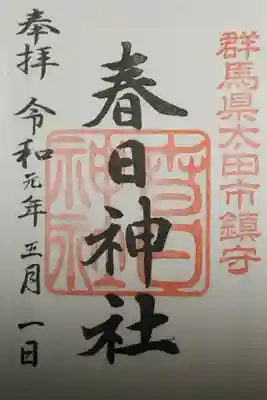 群馬県太田市鎮守
春日神社
春日神社
奉拝 令和元年五月一日